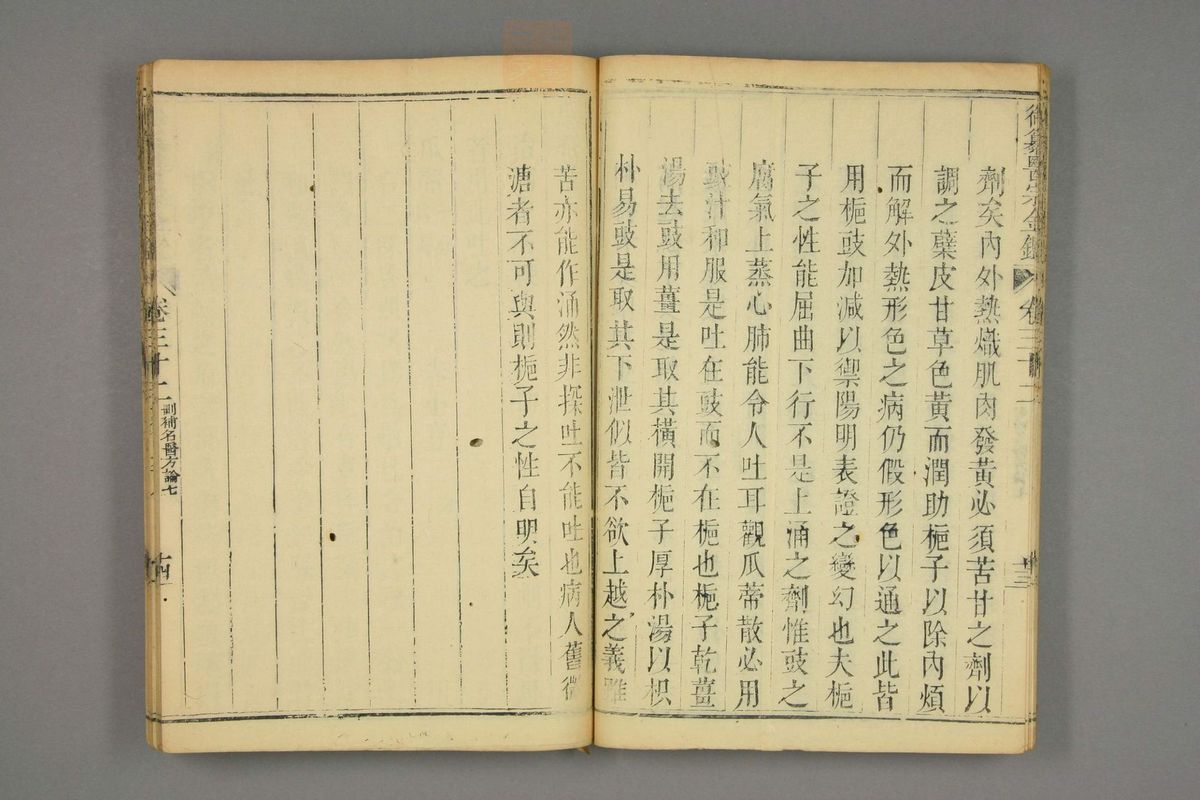 御纂醫宗金鑑
卷三十二
十三
劑矣內外熱熾肌肉發黃必須苦甘之劑以
調之蘗皮甘草色黃而潤助梔子以除內煩
而解外熱形色之病仍假形色以通之此皆
用梔豉加減以禦陽明表證之變幻也夫梔
子之性能屈曲下行不是上涌之劑惟豉之
腐氣上蒸心肺能令人吐耳觀瓜蒂散必用
豉汁和服是吐在豉而不在梔也梔子乾薑
湯去豉用薑是取其橫開梔子厚朴湯以枳
朴易豉是取其下泄似皆不欲上越之義雖
苦亦能作涌然非探吐不能吐也病人舊微
溏者不可與則梔子之性自明矣
刪補名醫方論七
十四